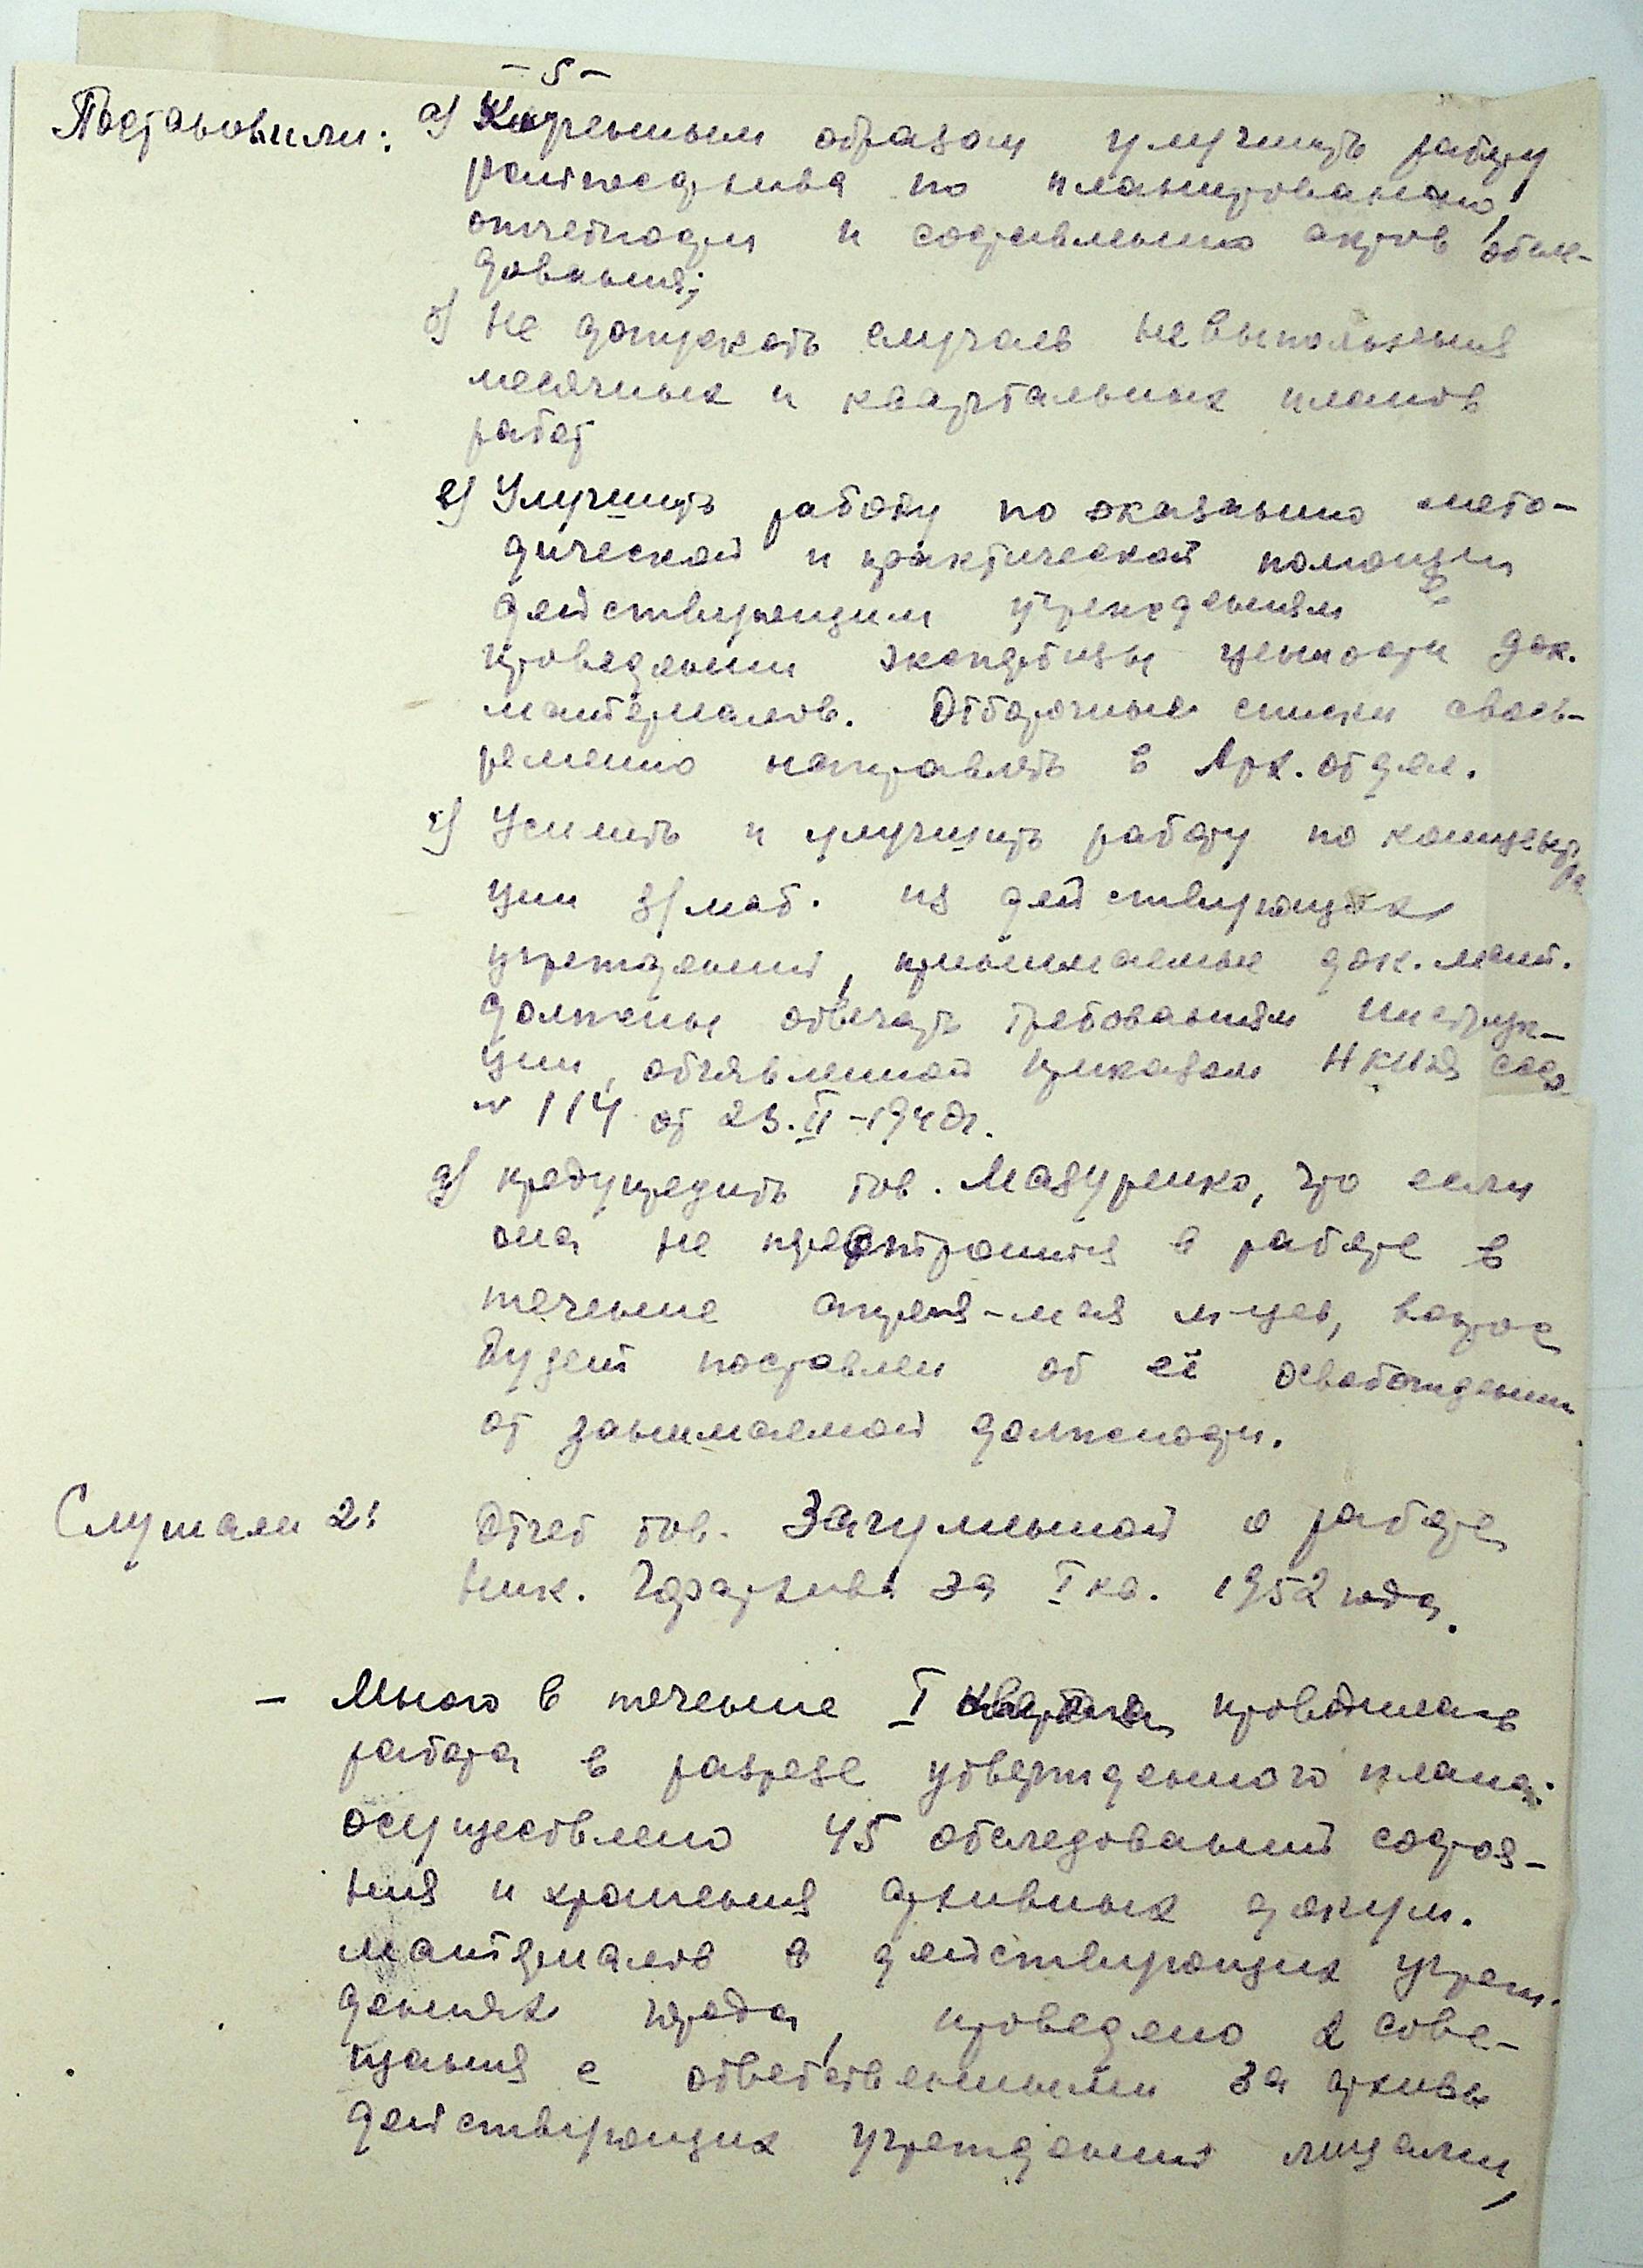 - 5 -
Постановили: а) Коренным образом улучшить работу
райгосархива по планированию,
отчетности и составлению актов обсле-
дования;
б) Не допускать случаев невыполнения
месячных и квартальных планов
работ
в) Улучшить работу по оказанию мето-
дической и практической помощи
действующим учреждениям в
проведении экспертизы ценности док.
материалов. Отборочные списки свое-
ременно направлять в Арх. отдел.
г) Усилить и улучшить работу по концентра
ции з/мат. из действующих
учреждений, принимаемые док. мат.
должны отвечать требованиям инструк-
ции, объявленной приказом НКВД СССР
№ 114 от 23.II-194 г.
д) предупредить тов. Мазуренко, что если
она не перестроится в работе в
течение апреля-мая м-цев, вопрос
будет поставлен об её освобождении
от занимаемой должности.
Слушали 2: Отчет тов. Загумленной о работе
Ник. Горархива за I кв. 1952 года.
- Мною в течение I квартала проводилась
работа в разрезе утвержденного плана:
осуществлено 45 обследований состоя-
ния и хранения архивных докум.
материалов в действующих учреж-
дениях города, проведено 2 сове-
щания с ответственными за архивы
действующих учреждений лицами,